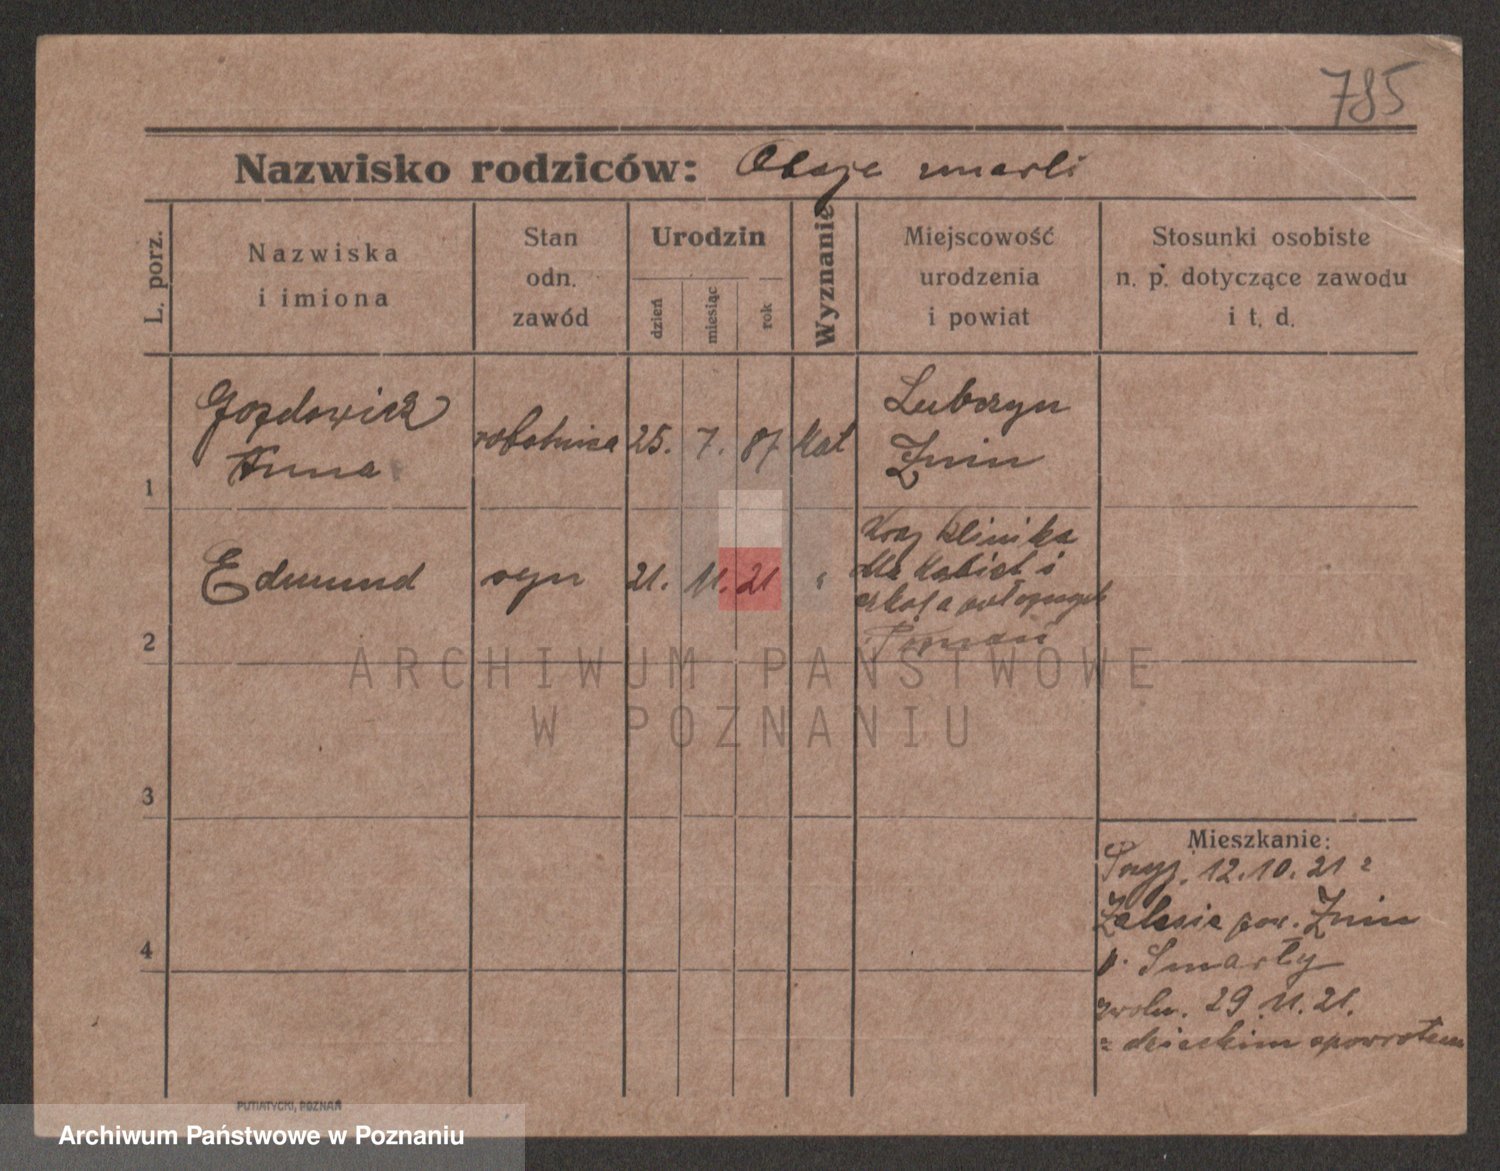 785
Nazwisko rodziców: Oboje zmarli
L. porz.
Nazwiska
i imiona
Stan
odn.
zawód
Urodzin
dzień
miesiąc
rok
Wyznanie
Miejscowość
urodzenia
i powiat
Stosunki osobiste
n. p. dotyczące zawodu
i t. d.
1
Gozdowicz
Anna
robotnica
25. 7. 87
kat
Lubczyn
Żnin
2
Edmund
syn
21. 11. 21
"
klinika
dla kobiet i
szkoła położnych
Poznań
3
4
Mieszkanie:
Przyj. 12.10.21 z
Zalesie pow. Żnin
p. Smarły
zwoln. 29.11.21.
z dzieckim spowrotem
PUTIATYCKI, POZNAŃ
ARCHIWUM PAŃSTWOWE
W POZNANIU
Archiwum Państwowe w Poznaniu